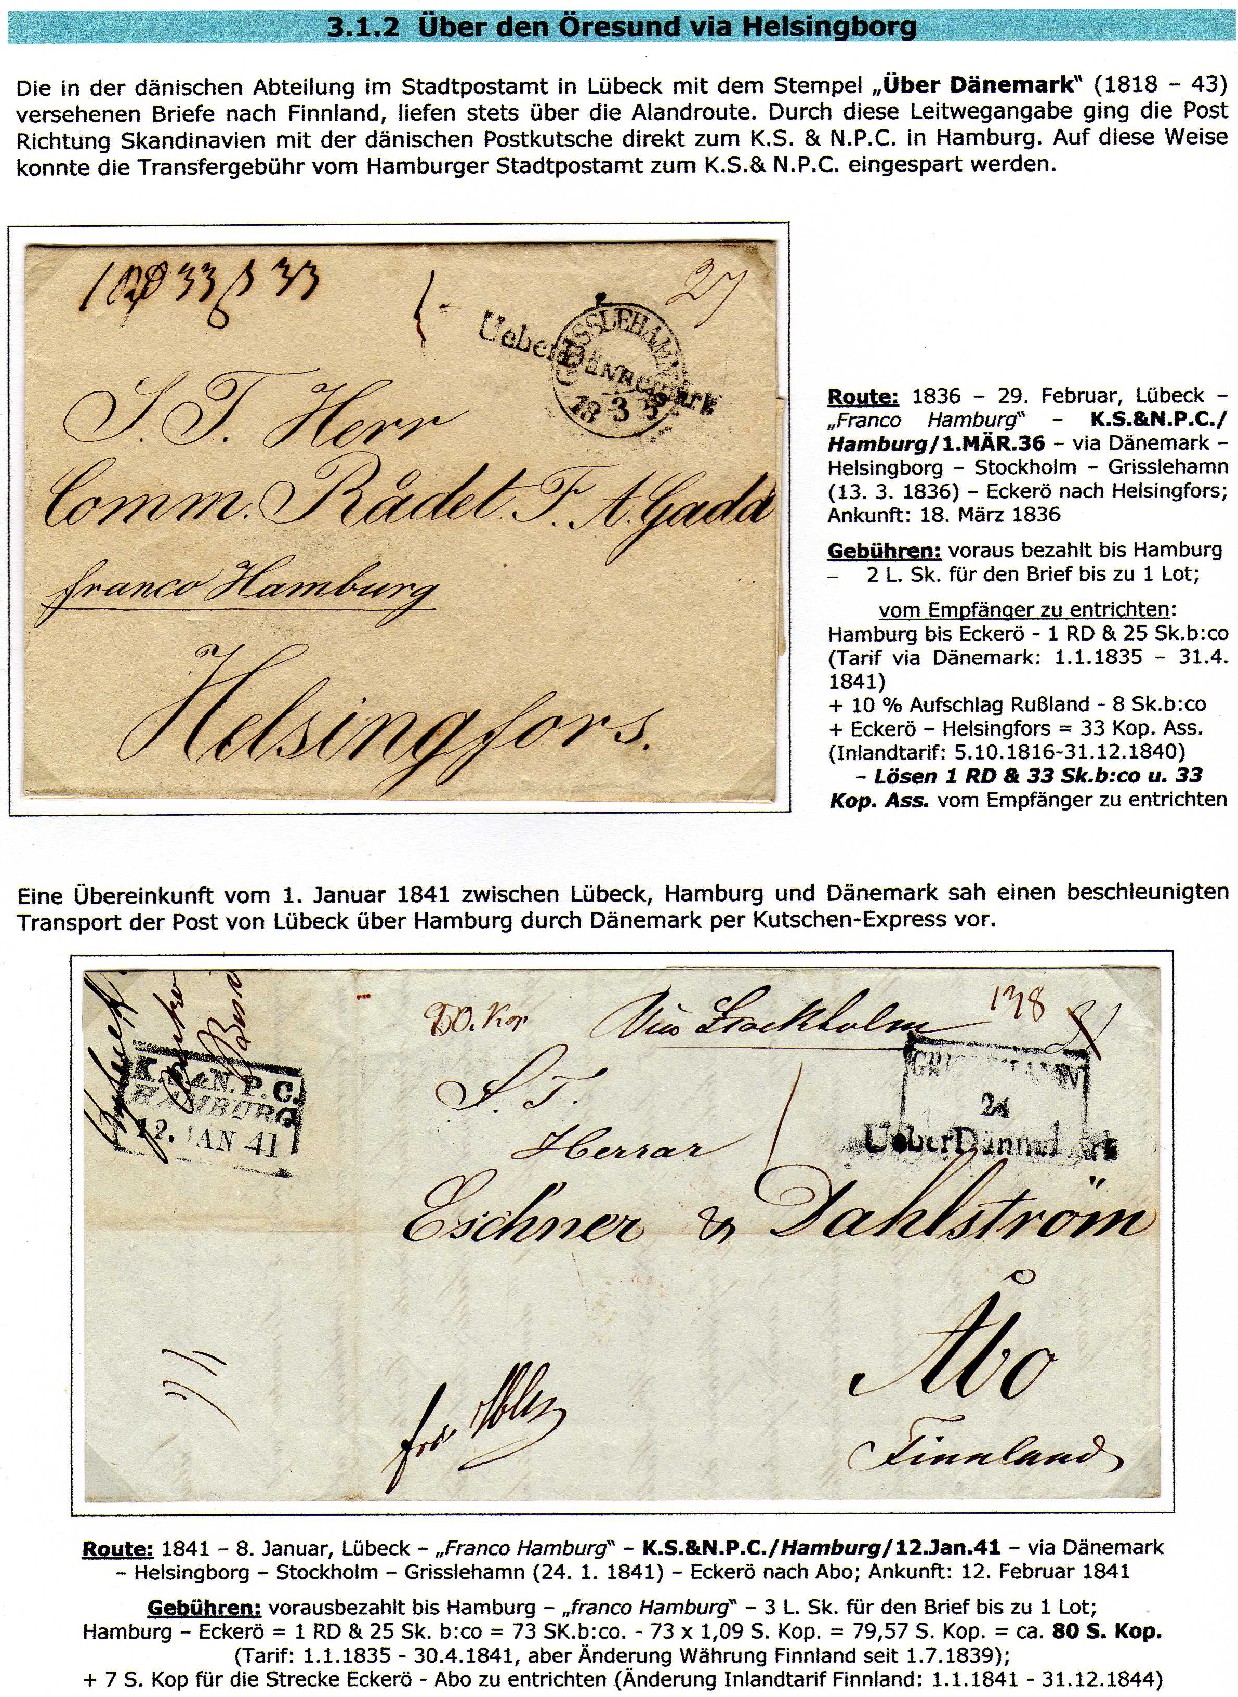 3.1.2 Über den Öresund via Helsingborg
Die in der dänischen Abteilung im Stadtpostamt in Lübeck mit dem Stempel „Über Dänemark“ (1818 – 43)
versehenen Briefe nach Finnland, liefen stets über die Alandroute. Durch diese Leitwegangabe ging die Post
Richtung Skandinavien mit der dänischen Postkutsche direkt zum K.S. & N.P.C. in Hamburg. Auf diese Weise
konnte die Transfergebühr vom Hamburger Stadtpostamt zum K.S.& N.P.C. eingespart werden.
33 33
27
Ueber Dännemark
GRISSLEHAMN
S. T. Herr
Comm. Rådet F. A. Gadd
franco Hamburg
Helsingfors.
Route: 1836 – 29. Februar, Lübeck –
„Franco Hamburg“ – K.S.&N.P.C./
Hamburg/1.MÄR.36 – via Dänemark –
Helsingborg – Stockholm – Grisslehamn
(13. 3. 1836) – Eckerö nach Helsingfors;
Ankunft: 18. März 1836
Gebühren: voraus bezahlt bis Hamburg
– 2 L. Sk. für den Brief bis zu 1 Lot;
vom Empfänger zu entrichten:
Hamburg bis Eckerö - 1 RD & 25 Sk.b:co
(Tarif via Dänemark: 1.1.1835 – 31.4.
1841)
+ 10 % Aufschlag Rußland - 8 Sk.b:co
+ Eckerö – Helsingfors = 33 Kop. Ass.
(Inlandtarif: 5.10.1816-31.12.1840)
– Lösen 1 RD & 33 Sk.b:co u. 33
Kop. Ass. vom Empfänger zu entrichten
Eine Übereinkunft vom 1. Januar 1841 zwischen Lübeck, Hamburg und Dänemark sah einen beschleunigten
Transport der Post von Lübeck über Hamburg durch Dänemark per Kutschen-Express vor.
80. Kop
Via Stockholm
138
K.S.&N.P.C.
HAMBURG
12. JAN 41
GRISSLEHAMN
24
Ueber Dännemark
S. T.
Herrar
Eschner & Dahlström
Åbo
Finnland
Route: 1841 – 8. Januar, Lübeck – „Franco Hamburg“ – K.S.&N.P.C./Hamburg/12.Jan.41 – via Dänemark
– Helsingborg – Stockholm – Grisslehamn (24. 1. 1841) – Eckerö nach Abo; Ankunft: 12. Februar 1841
Gebühren: vorausbezahlt bis Hamburg – „franco Hamburg“ – 3 L. Sk. für den Brief bis zu 1 Lot;
Hamburg – Eckerö = 1 RD & 25 Sk. b:co = 73 SK.b:co. - 73 x 1,09 S. Kop. = 79,57 S. Kop. = ca. 80 S. Kop.
(Tarif: 1.1.1835 - 30.4.1841, aber Änderung Währung Finnland seit 1.7.1839);
+ 7 S. Kop für die Strecke Eckerö - Abo zu entrichten (Änderung Inlandtarif Finnland: 1.1.1841 - 31.12.1844)